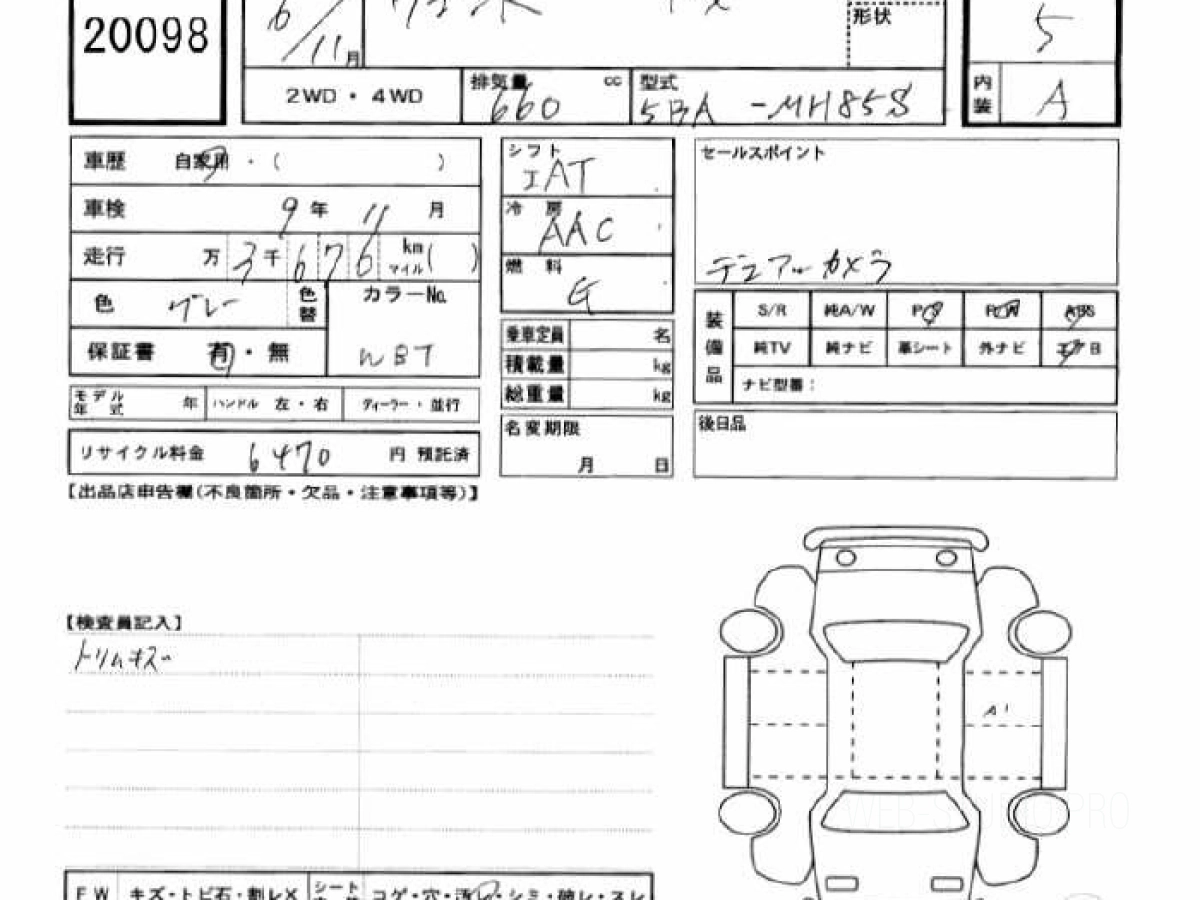 20098
6/11月
形状
5
2WD・4WD
排気量 660 cc
型式 5BA-MH85S
内装 A
車歴 自家用・( )
車検 9年 11月
走行 万3千676 km マイル( )
色 グレー 色替
カラーNo. WBT
保証書 有・無
モデル年式 年 ハンドル 左・右 ディーラー・並行
リサイクル料金 6470 円 預託済
シフト IAT
冷房 AAC
燃料 G
乗車定員 名
積載量 kg
総重量 kg
名変期限
月 日
セールスポイント
デュアルカメラ
装備品
S/R 純A/W P/S P/W ABS
純TV 純ナビ 革シート 外ナビ エアB
ナビ型番:
後日品
【出品店申告欄(不良箇所・欠品・注意事項等)】
【検査員記入】
トリムキズ~
A1
WEB-STUDIO PRO
FW キズ・トビ石・割レX シート コゲ・穴・汚レ・シミ・破レ・スレ